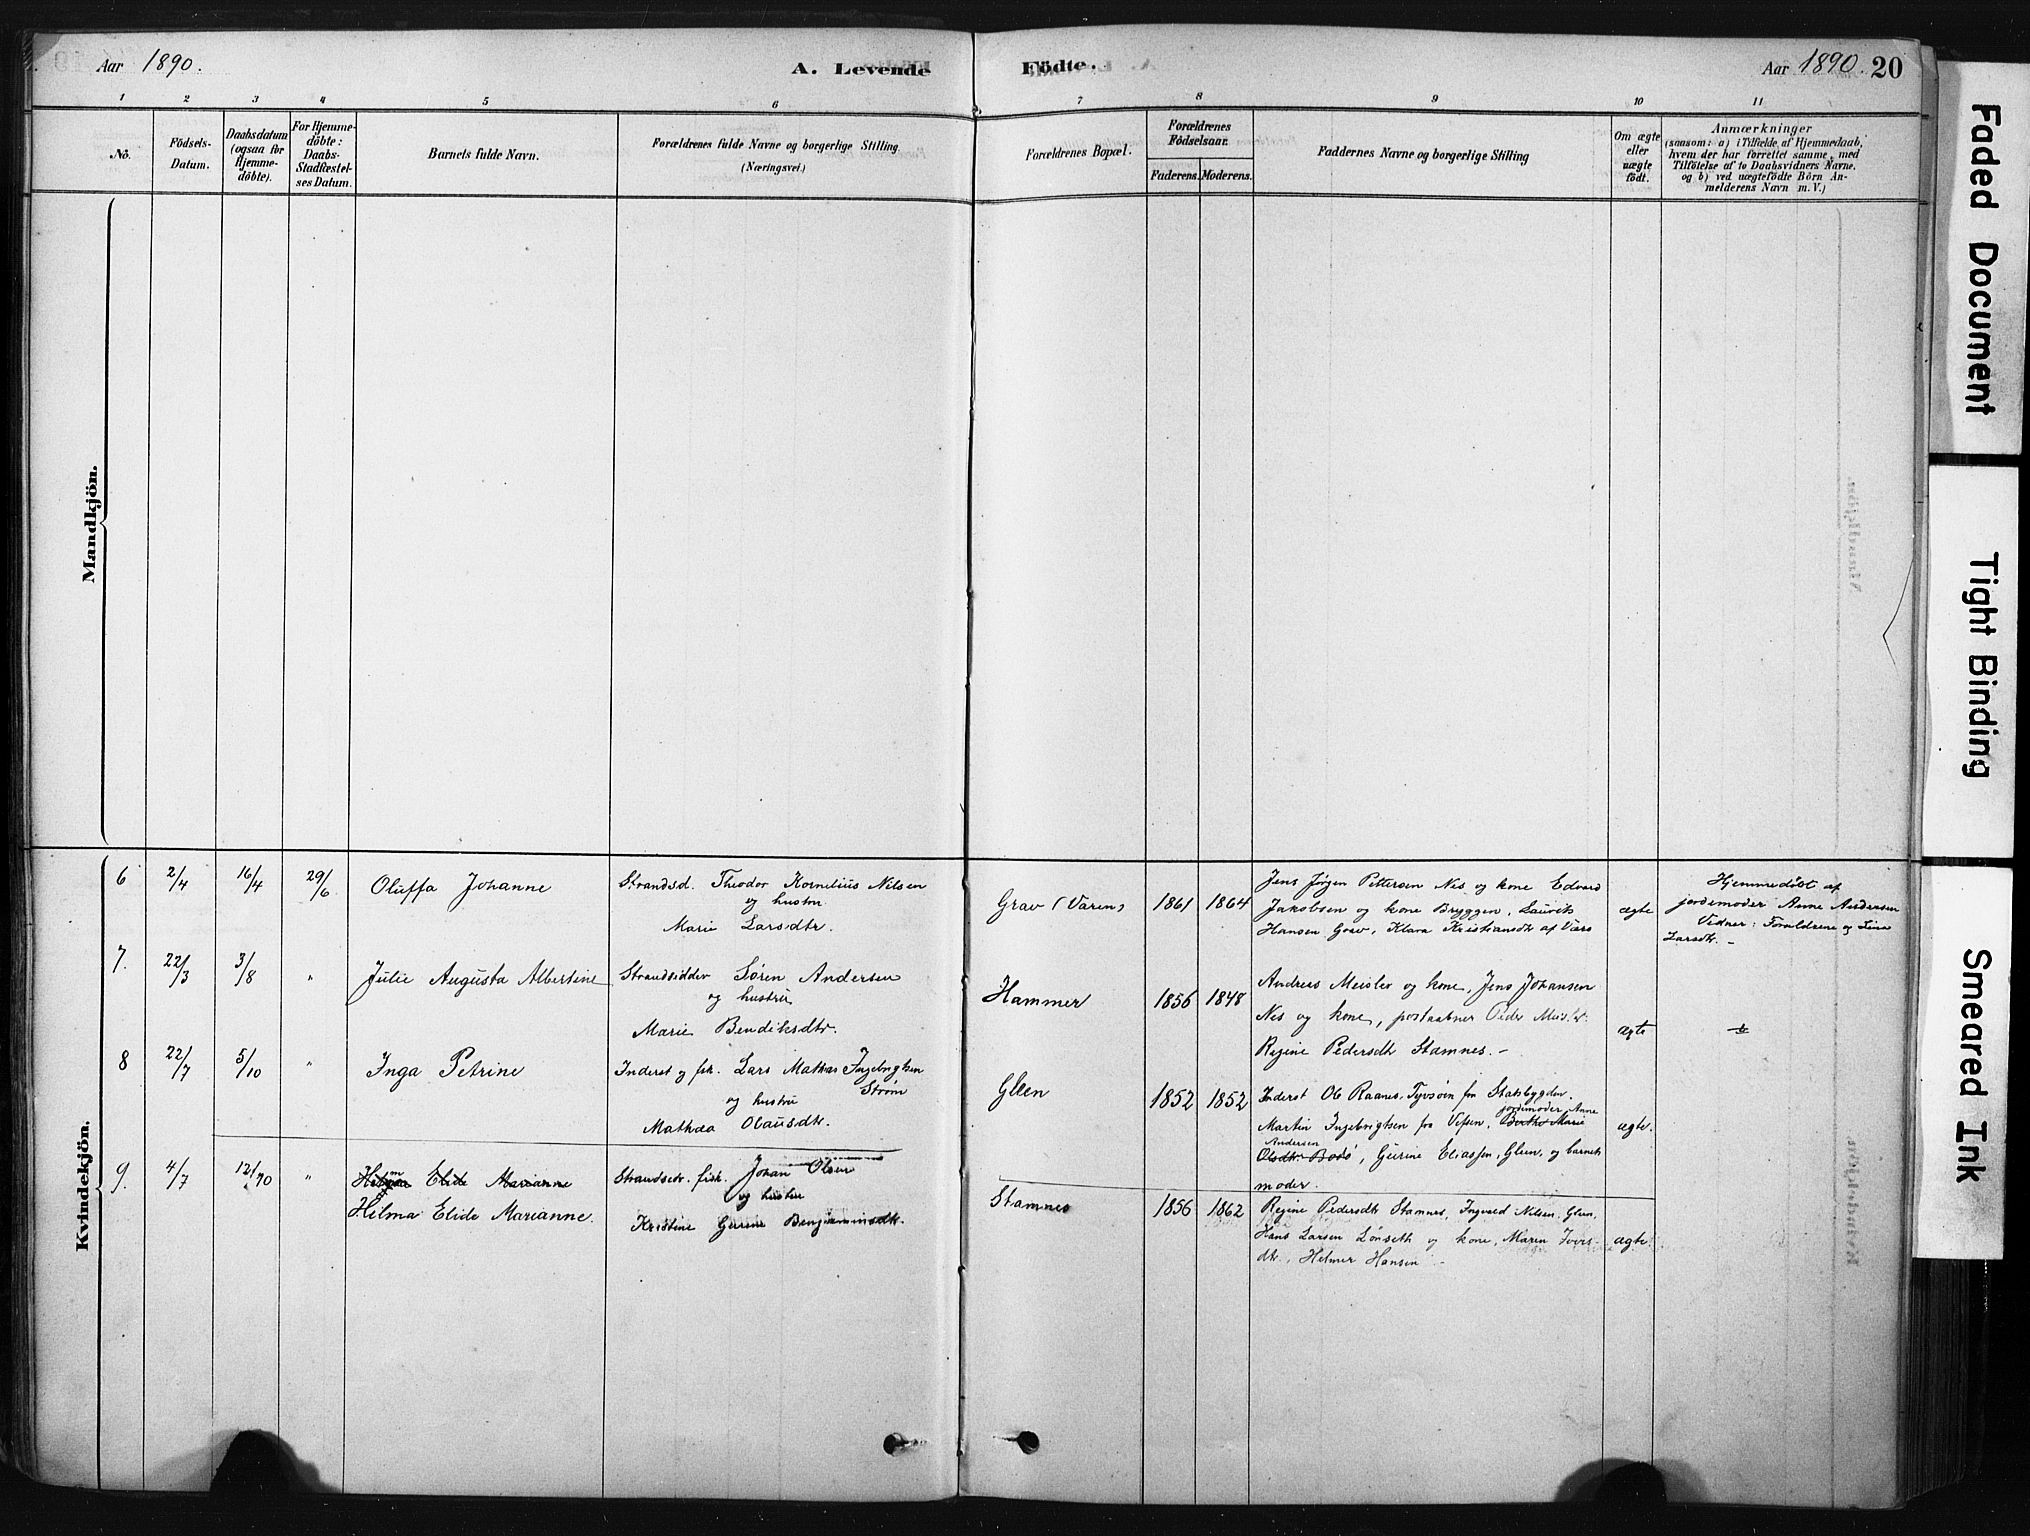 Aar 1890. A. Levende Födte. Aar 1890. 20
1 2 3 4 5 6 7 8 9 10 11
No.
Födsels-Datum.
Daabsdatum (ogsaa for Hjemme-döbte).
For Hjemme-döbte: Daabs-Stadfæstel-ses Datum.
Barnets fulde Navn.
Forældrenes fulde Navne og borgerlige Stilling
(Næringsvei.)
Forældrenes Bopæl.
Forældrenes Födselsaar.
Faderens. Moderens.
Faddernes Navne og borgerlige Stilling
Om ægte eller uægte födt.
Anmærkninger
(saasom: a) i Tilfælde af Hjemmedaab,
hvem der har forrettet samme, med
Tilföielse af to Daabsvidners Navne,
og b) ved uægtefödte Börn An-
melderens Navn m. V.)
Mandkjön.
Kvindekjön.
6 2/4 16/4 29/6 Oluffa Johanne
Strandsd. Theodor Kornelius Nilsen
og hustru
Marie Larsdtr.
Grav (Væren) 1861 1864
Jens Jörgen Pettersen Nes og kone Edvard
Jakobsen og kone Bryggen, Laurits
Hansen Grav, Klara Kristiansdt af Værs
ægte
Hjemmedöbt af
jordemoder Anne Andersen
Vidner: Forældrene og Lina
Larsdt. -
7. 22/3 3/8 " Julie Augusta Albertine
Strandsidder Sören Andersen
og hustru
Marie Bendiksdtr.
Hammer 1856 1848
Andreas Meisler og kone, Jens Johansen
Nes og kone, postaabner Peder
Regine Pedersdt Stamnes. -
ægte
8 22/7 5/10 " Inga Petrine
Inderst og fisk. Lars Mathias Ingebrigtsen
Ström
og hustru
Mathea Olausdtr.
Gleen 1852 1852
Inderst Ole Raanes, fra Stadsbygden.
Martin Ingebrigtsen fra Vefsen, jordemoder Anne
Berthe Marie
Andersen
Olsdtr. Bodö, Gurine Eliassen, Gleen, og barnets
moder.
ægte.
9. 4/7 12/10 " Hilma Elide Marianne
Hilma Elide Marianne.
Strandsidr. fisk. Johan Olsen
og hustru
Kristine Gurine Benjaminsdtr.
Stamnes 1856 1862
Regine Pedersdt Stamnes, Ingvald Nilsen, Gleen,
Hans Larsen Lönseth og kone, Maren Ivers-
dtr., Helmer Hansen -
ægte.
Faded Document
Tight Binding
Smeared Ink